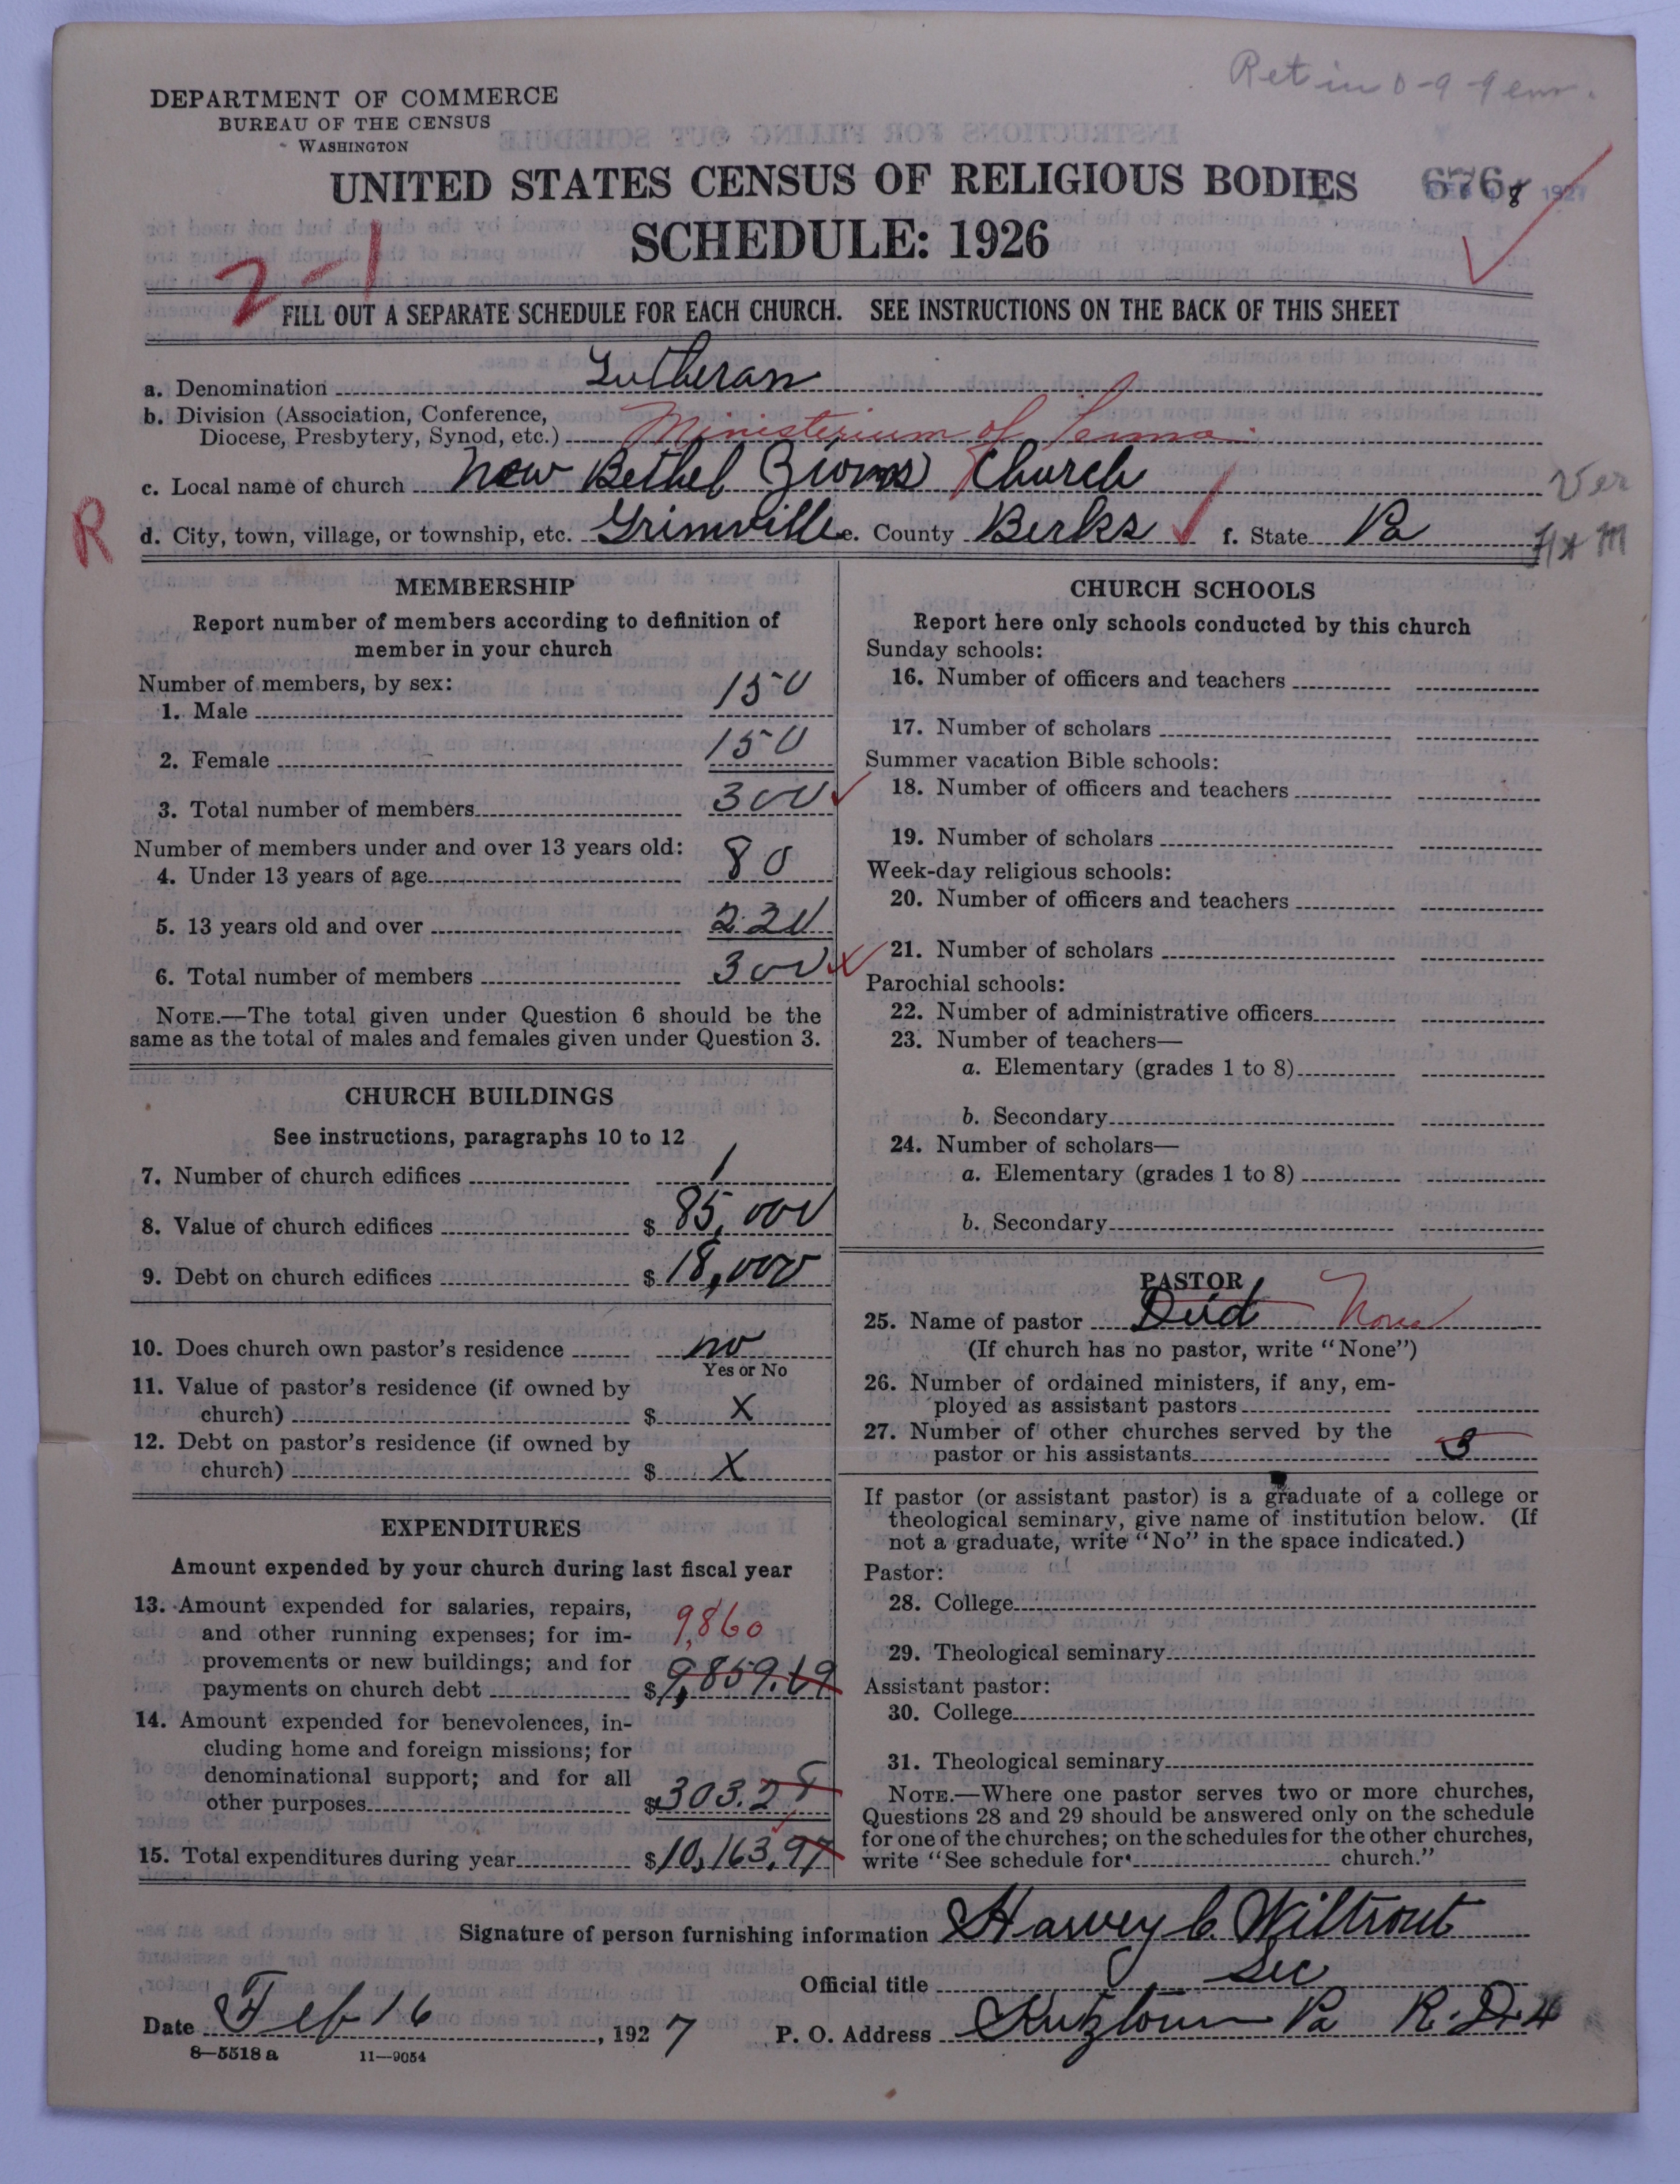 Ret in 0-9-9 em.
DEPARTMENT OF COMMERCE
BUREAU OF THE CENSUS
WASHINGTON
UNITED STATES CENSUS OF RELIGIOUS BODIES
6768 1927
SCHEDULE: 1926
2-1
FILL OUT A SEPARATE SCHEDULE FOR EACH CHURCH. SEE INSTRUCTIONS ON THE BACK OF THIS SHEET
a. Denomination Lutheran
b. Division (Association, Conference,
Diocese, Presbytery, Synod, etc.) Ministerium of Penna.
c. Local name of church New Bethel (Zions) Church
Ver
R
d. City, town, village, or township, etc. Grimville e. County Berks f. State Pa
MEMBERSHIP
Report number of members according to definition of
member in your church
Number of members, by sex:
1. Male 150
2. Female 150
3. Total number of members 300
Number of members under and over 13 years old:
4. Under 13 years of age 80
5. 13 years old and over 220
6. Total number of members 300
NOTE.—The total given under Question 6 should be the
same as the total of males and females given under Question 3.
CHURCH BUILDINGS
See instructions, paragraphs 10 to 12
7. Number of church edifices 1
8. Value of church edifices $ 85,000
9. Debt on church edifices $ 18,000
10. Does church own pastor's residence no
Yes or No
11. Value of pastor's residence (if owned by
church) $ X
12. Debt on pastor's residence (if owned by
church) $ X
EXPENDITURES
Amount expended by your church during last fiscal year
13. Amount expended for salaries, repairs,
and other running expenses; for im- 9,860
provements or new buildings; and for
payments on church debt $ 9,859.69
14. Amount expended for benevolences, in-
cluding home and foreign missions; for
denominational support; and for all
other purposes $ 303.28
15. Total expenditures during year $ 10,163.97
CHURCH SCHOOLS
Report here only schools conducted by this church
Sunday schools:
16. Number of officers and teachers
17. Number of scholars
Summer vacation Bible schools:
18. Number of officers and teachers
19. Number of scholars
Week-day religious schools:
20. Number of officers and teachers
21. Number of scholars
Parochial schools:
22. Number of administrative officers
23. Number of teachers—
a. Elementary (grades 1 to 8)
b. Secondary
24. Number of scholars—
a. Elementary (grades 1 to 8)
b. Secondary
PASTOR
25. Name of pastor Died None
(If church has no pastor, write "None")
26. Number of ordained ministers, if any, em-
ployed as assistant pastors
27. Number of other churches served by the
pastor or his assistants 3
If pastor (or assistant pastor) is a graduate of a college or
theological seminary, give name of institution below. (If
not a graduate, write "No" in the space indicated.)
Pastor:
28. College
29. Theological seminary
Assistant pastor:
30. College
31. Theological seminary
NOTE.—Where one pastor serves two or more churches,
Questions 28 and 29 should be answered only on the schedule
for one of the churches; on the schedules for the other churches,
write "See schedule for church."
Signature of person furnishing information Harvey C. Wiltrout
Official title Sec
Date Feb 16, 1927 P. O. Address Kutztown Pa R.D.4
8—5518 a 11—9054